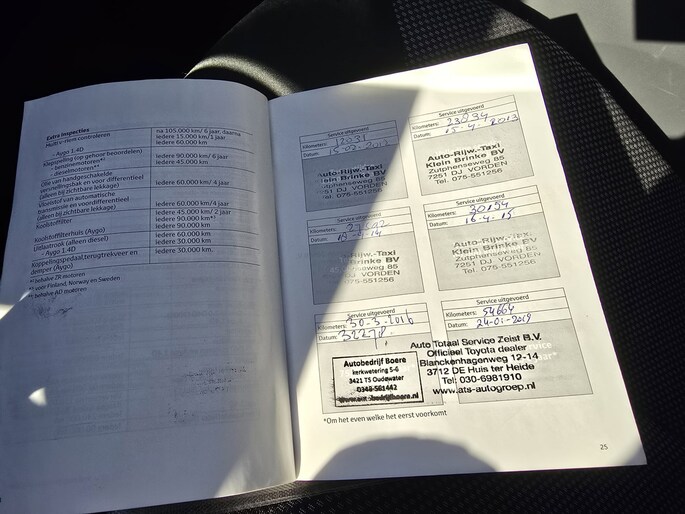 Extra inspecties
Multi v-riem controleren
na 105.000 km/ 6 jaar, daarna
iedere 15.000 km/1 jaar
- Aygo 1.4D
iedere 60.000 km
Klepspeling (op gehoor beoordelen)
- benzinemotoren*¹
iedere 90.000 km/ 6 jaar
- dieselmotoren*²
iedere 45.000 km
Olie van handgeschakelde
versnellingsbak en voor differentieel
(alleen bij zichtbare lekkage)
iedere 60.000 km/ 4 jaar
Vloeistof van automatische
transmissie en voordifferentieel
(alleen bij zichtbare lekkage)
iedere 60.000 km/4 jaar
Koolstoffilter
iedere 45.000 km/ 2 jaar
iedere 90.000 km*³
Koolstoffilterhuis (Aygo)
iedere 90.000 km
Uitlaatrook (alleen diesel)
iedere 60.000 km
- Aygo 1.4D
iedere 30.000 km
Koppelingspedaal,terugtrekveer en
demper (Aygo)
iedere 30.000 km.
*¹ behalve ZR motoren
voor Finland, Norway en Sweden
behalve AD motoren
Service uitgevoerd
Kilometers:
Datum:
Auto-Rijw.-Taxi
Klein Brinke BV
Zutphenseweg 85
7251 DJ VORDEN
Tel. 075-551256
Service uitgevoerd
Kilometers: 23834
Datum: 15-4-2013
Auto-Rijw.-Taxi
Klein Brinke BV
Zutphenseweg 85
7251 DJ VORDEN
Tel. 075-551256
Service uitgevoerd
Kilometers:
Datum:
Auto-Rijw.-Taxi
Klein Brinke BV
Zutphenseweg 85
7251 DJ VORDEN
Tel. 075-551256
Service uitgevoerd
Kilometers: 30194
Datum: 16-4-15
Auto-Rijw.-Taxi
Klein Brinke BV
Zutphenseweg 85
7251 DJ VORDEN
Tel. 075-551256
Service uitgevoerd
Kilometers: 30-3-2016
Datum: 32278
Autobedrijf Boere
kerkwetering 5-6
3421 TS Oudewater
0348-561442
www.autobedrijfboere.nl
Service uitgevoerd
Kilometers: 54664
Datum: 24-01-2019
Auto Totaal Service Zeist B.V.
Officieel Toyota dealer
Blanckenhagenweg 12-14
3712 DE Huis ter Heide
Tel: 030-6981910
www.ats-autogroep.nl
*Om het even welke het eerst voorkomt
25